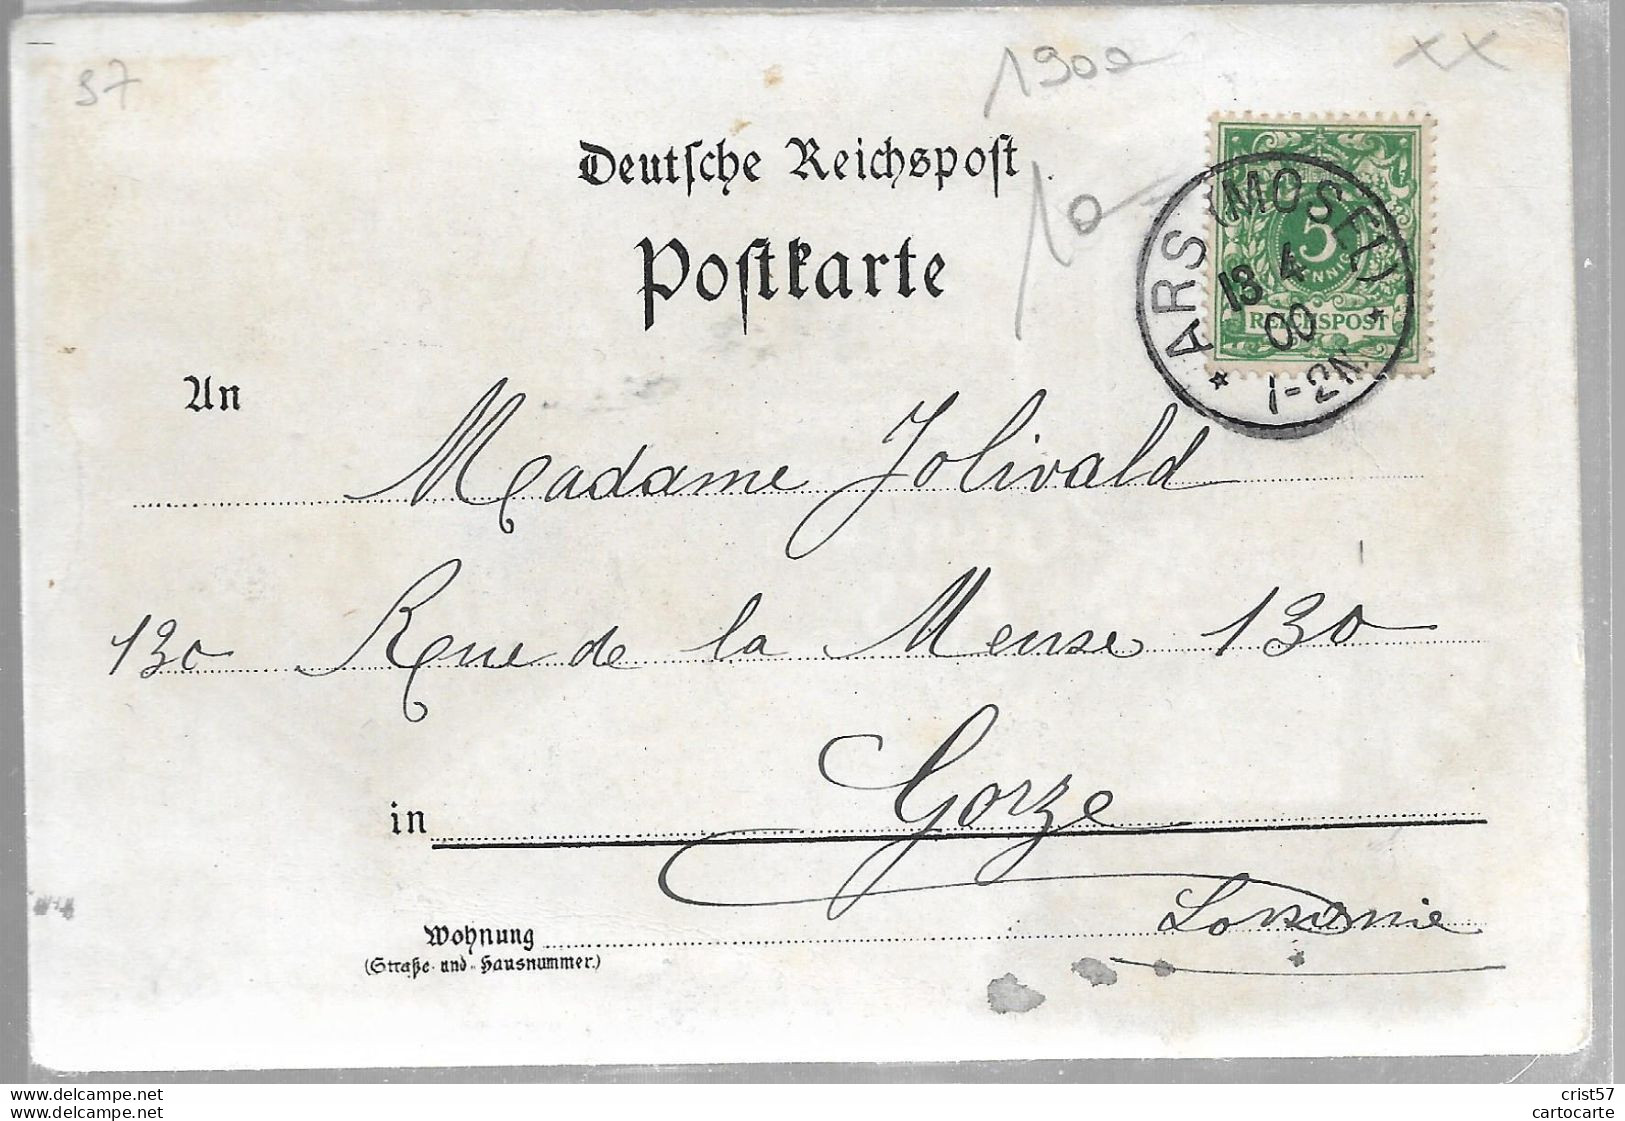 37
1900
XX
Deutsche Reichspost
Postkarte
10
ARS (MOSEL)
13 4
00
1-2N
5
PFENNIG
REICHSPOST
An
Madame Jolivald
130 Rue de la Meuse 130
in Gorze
Lorraine
Wohnung
(Straße und Hausnummer.)
www.delcampe.net
www.delcampe.net
crist57
cartocarte